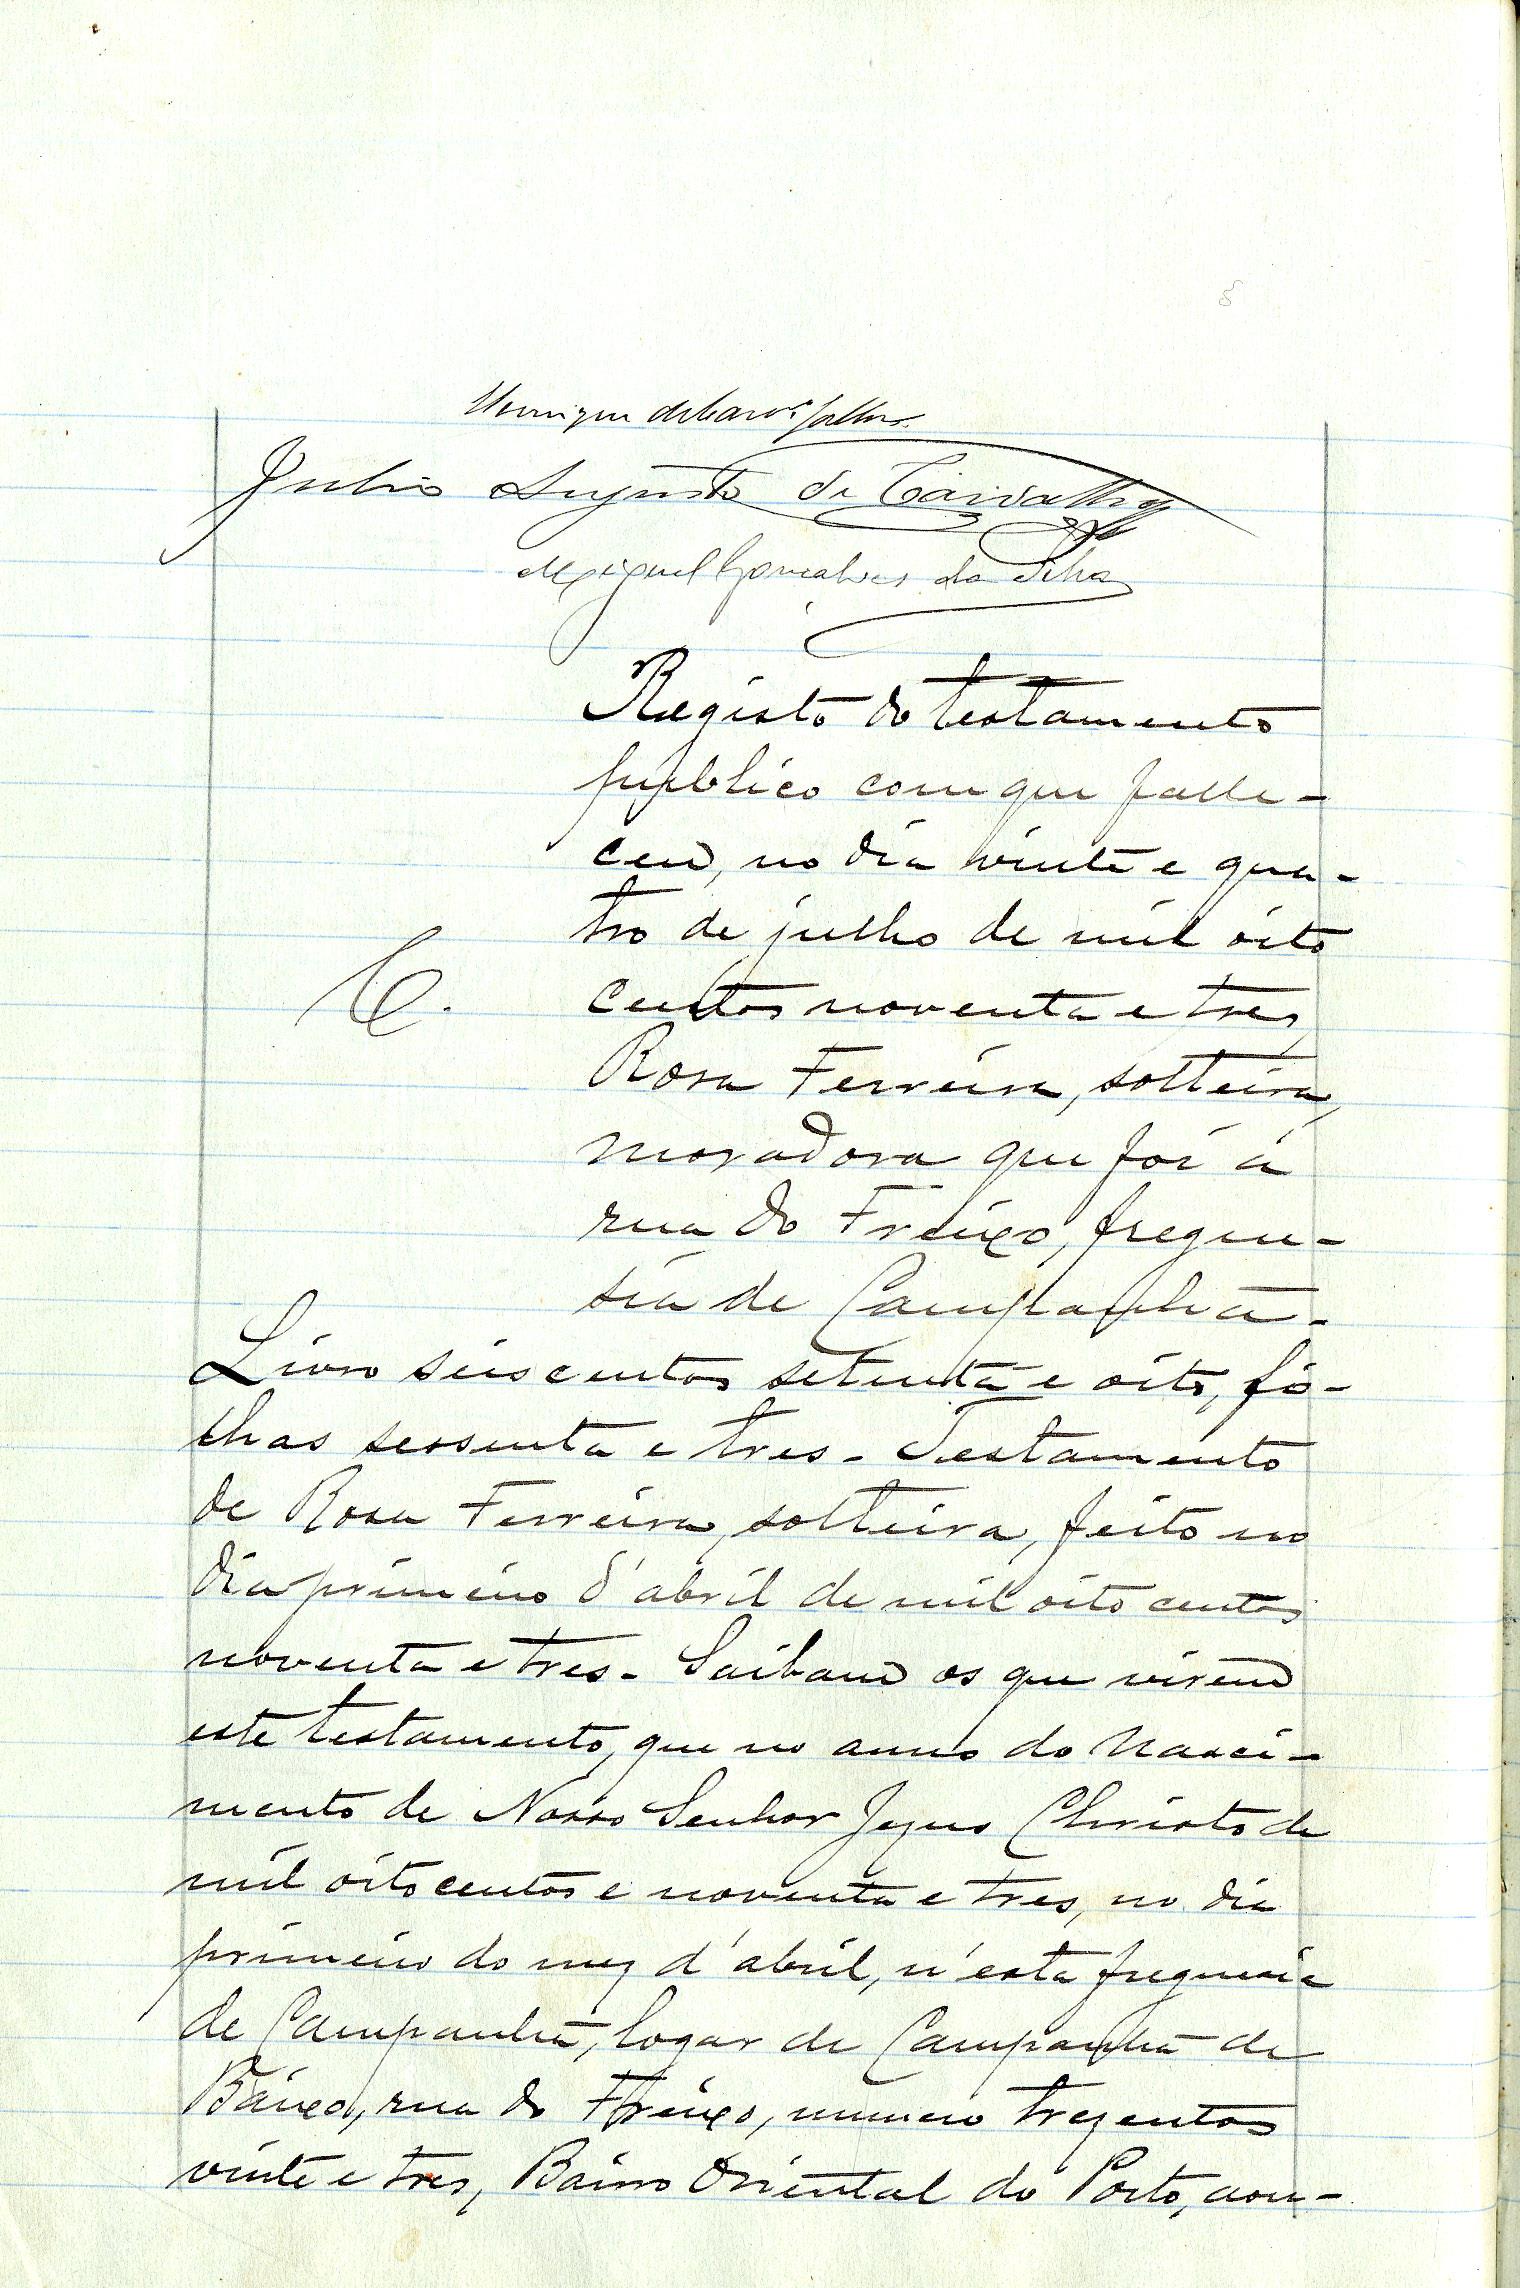 Julio Augusto de Carvalho
Miguel Gonçalves da Silva
Registo do testamento
publico com que falle-
ceu, no dia vinte e qua-
tro de julho de mil oito
centos noventa e tres,
C.
Rosa Ferreira, solteira,
moradora que foi á
rua do Freixo, fregue-
sia de Campanhã.
Livro seiscentos setenta e oito, fo-
lhas sessenta e tres. Testamento
de Rosa Ferreira, solteira, feito no
dia primeiro d'abril de mil oito centos
noventa e tres. Saibam os que virem
este testamento, que no anno do Nasci-
mento de Nosso Senhor Jezus Christo de
mil oitocentos e noventa e tres, no dia
primeiro do mez d'abril, n'esta freguesia
de Campanhã, logar de Campanhã de
Baixo, rua do Freixo, numero trezentos
vinte e tres, Bairro Oriental do Porto, aon-